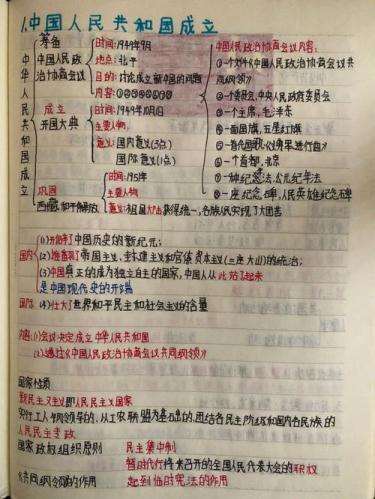 1.中国人民共和国成立
中华人民共和国成立
筹备
中国人民政治协商会议
时间:1949年9月
地点:北平
目的:讨论成立新中国的问题
内容:①②③④⑤⑥⑦⑧
成立
开国大典
时间:1949年10月1日
主要人物:
意义:国内意义(3点)
国际意义(1点)
巩固
西藏和平解放
时间:1951年
主要人物
意义:祖国大陆获得统一,各族人民实现了大团结
中国人民政治协商会议内容:
①一个文件《中国人民政治协商会议共同纲领》
②一个委员会,中央人民政府委员会
③一个主席,毛泽东
④一面国旗,五星红旗
⑤一首代国歌,《义勇军进行曲》
⑥一个首都,北京
⑦一种纪念法,公元纪年法
⑧一座纪念碑,人民英雄纪念碑
国内
(1)开辟了中国历史的新纪元;
(2)推翻了帝国主义、封建主义和官僚资本主义(三座大山)的统治;
(3)中国真正的成为独立自主的国家,中国人从此站了起来
是中国现代史的开端
国际 (4)壮大了世界和平民主和社会主义的力量
内容:(1)会议决定成立中华人民共和国
(2)通过《中国人民政治协商会议共同纲领》
国家性质
新民主主义即人民民主主义国家
实行工人阶级领导的、以工农联盟为基础的,团结各民主阶级和国内各民族的
人民民主专政
国家政权组织原则 民主集中制
暂时代行将来召开的全国人民代表大会的职权
《共同纲领》的作用 起到临时宪法的作用